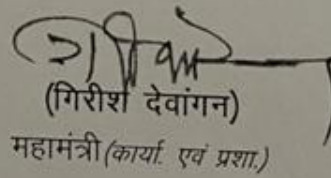 (गिरीश देवांगन)
महामंत्री (कार्या. एवं प्रशा.)